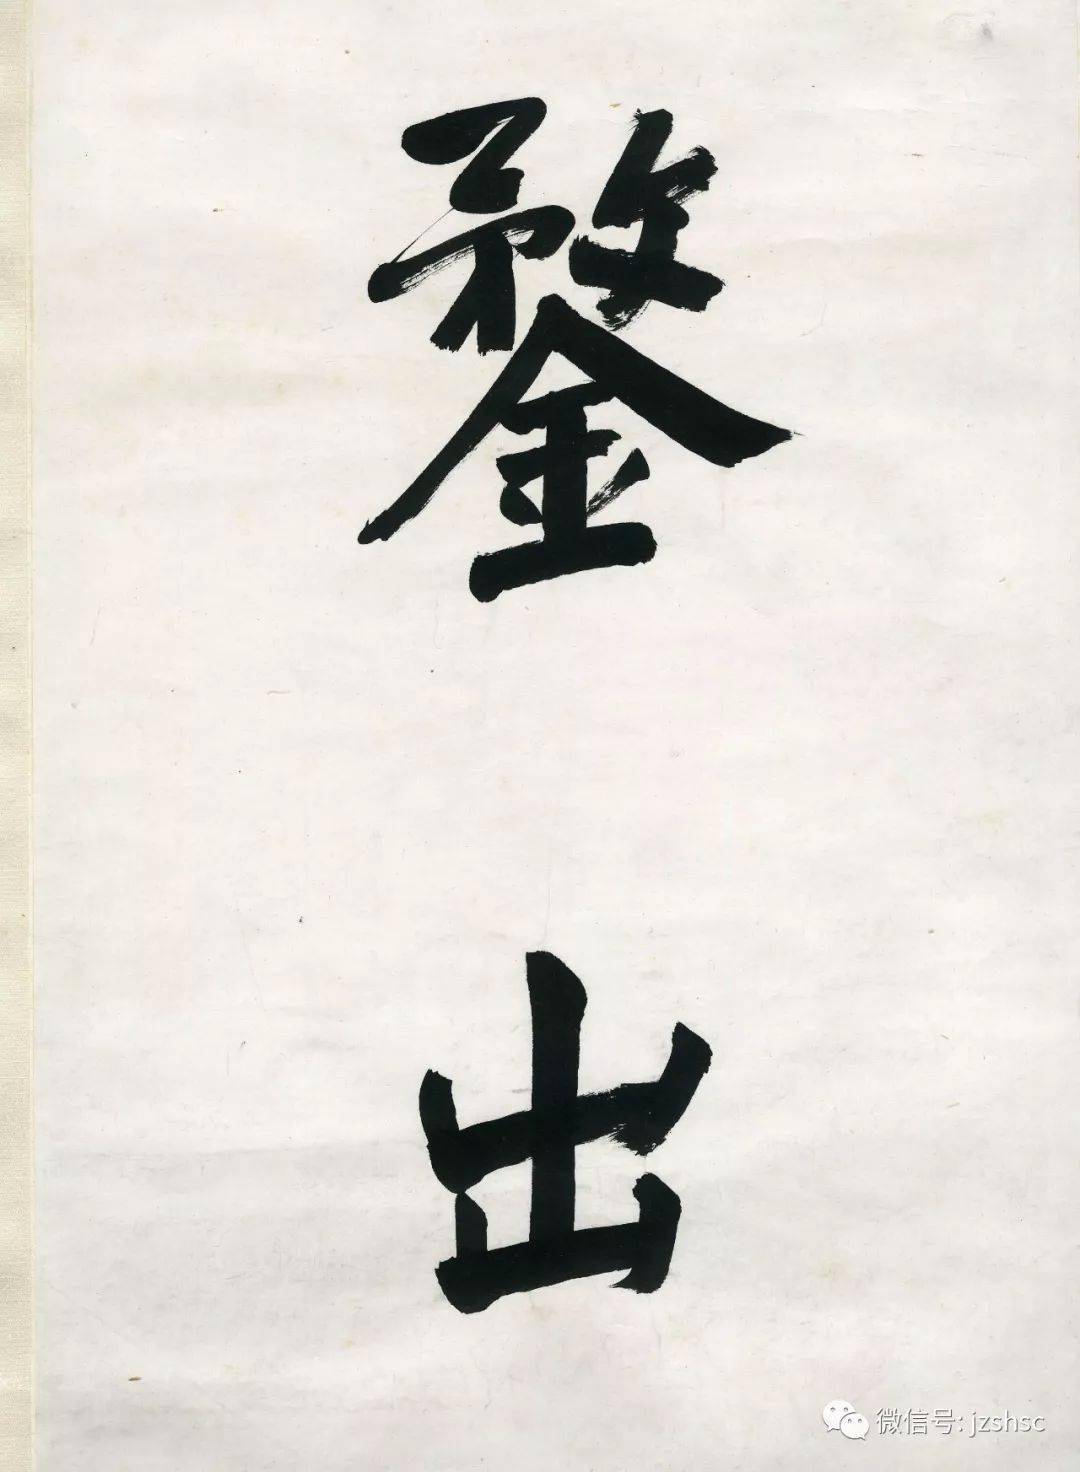 鍪
出
微信号: jzshsc